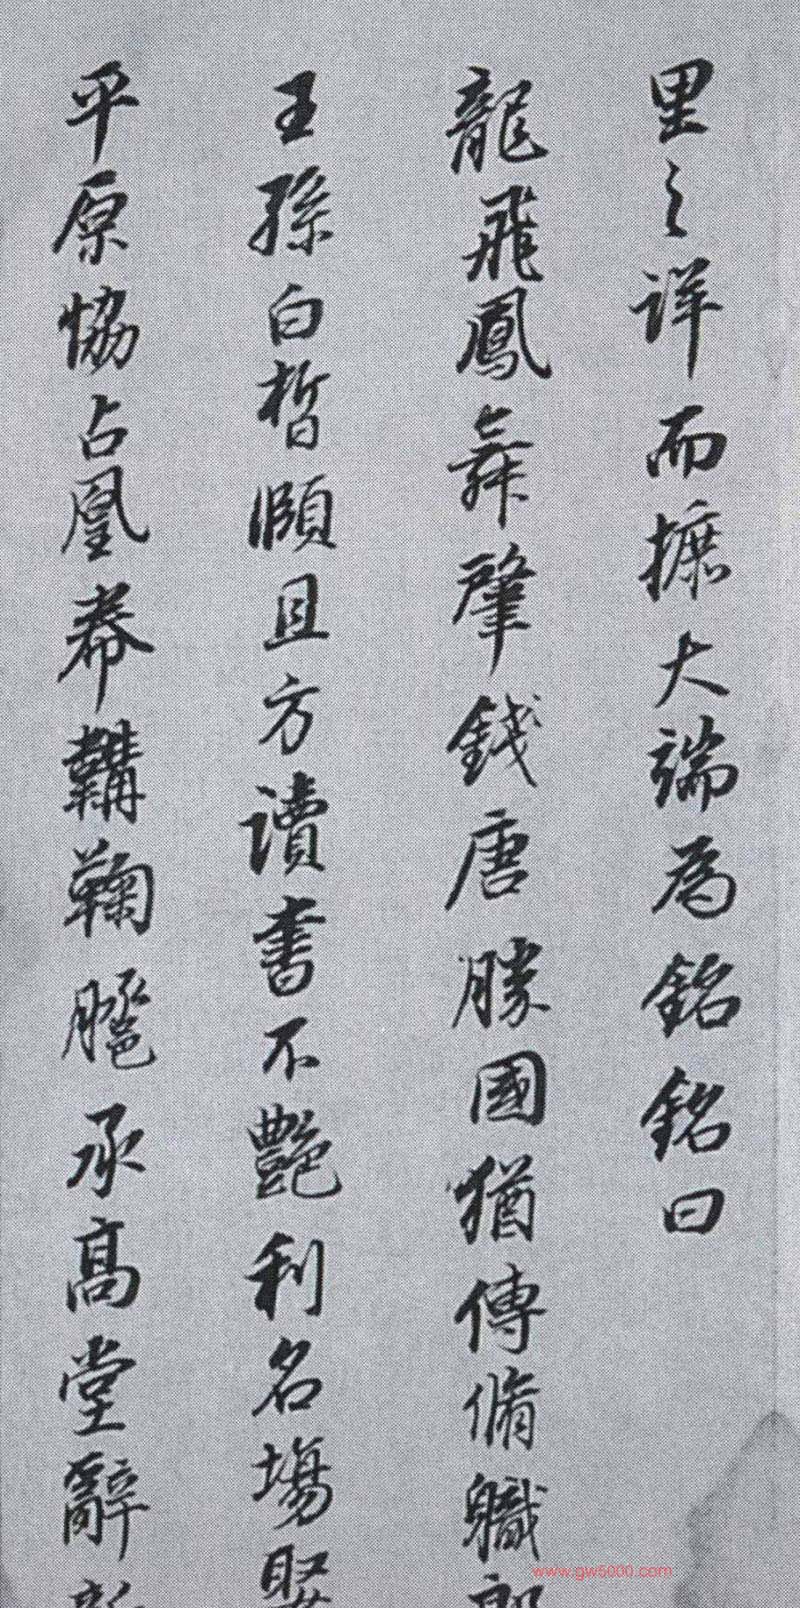 里之詳而摭大端為銘銘曰
龍飛鳳舞肇錢唐勝國猶傳脩職郎
王孫白晳頎且方讀書不艷利名場娶
平原協占凰奉韝鞠𦜕承高堂辭
www.gw5000.com